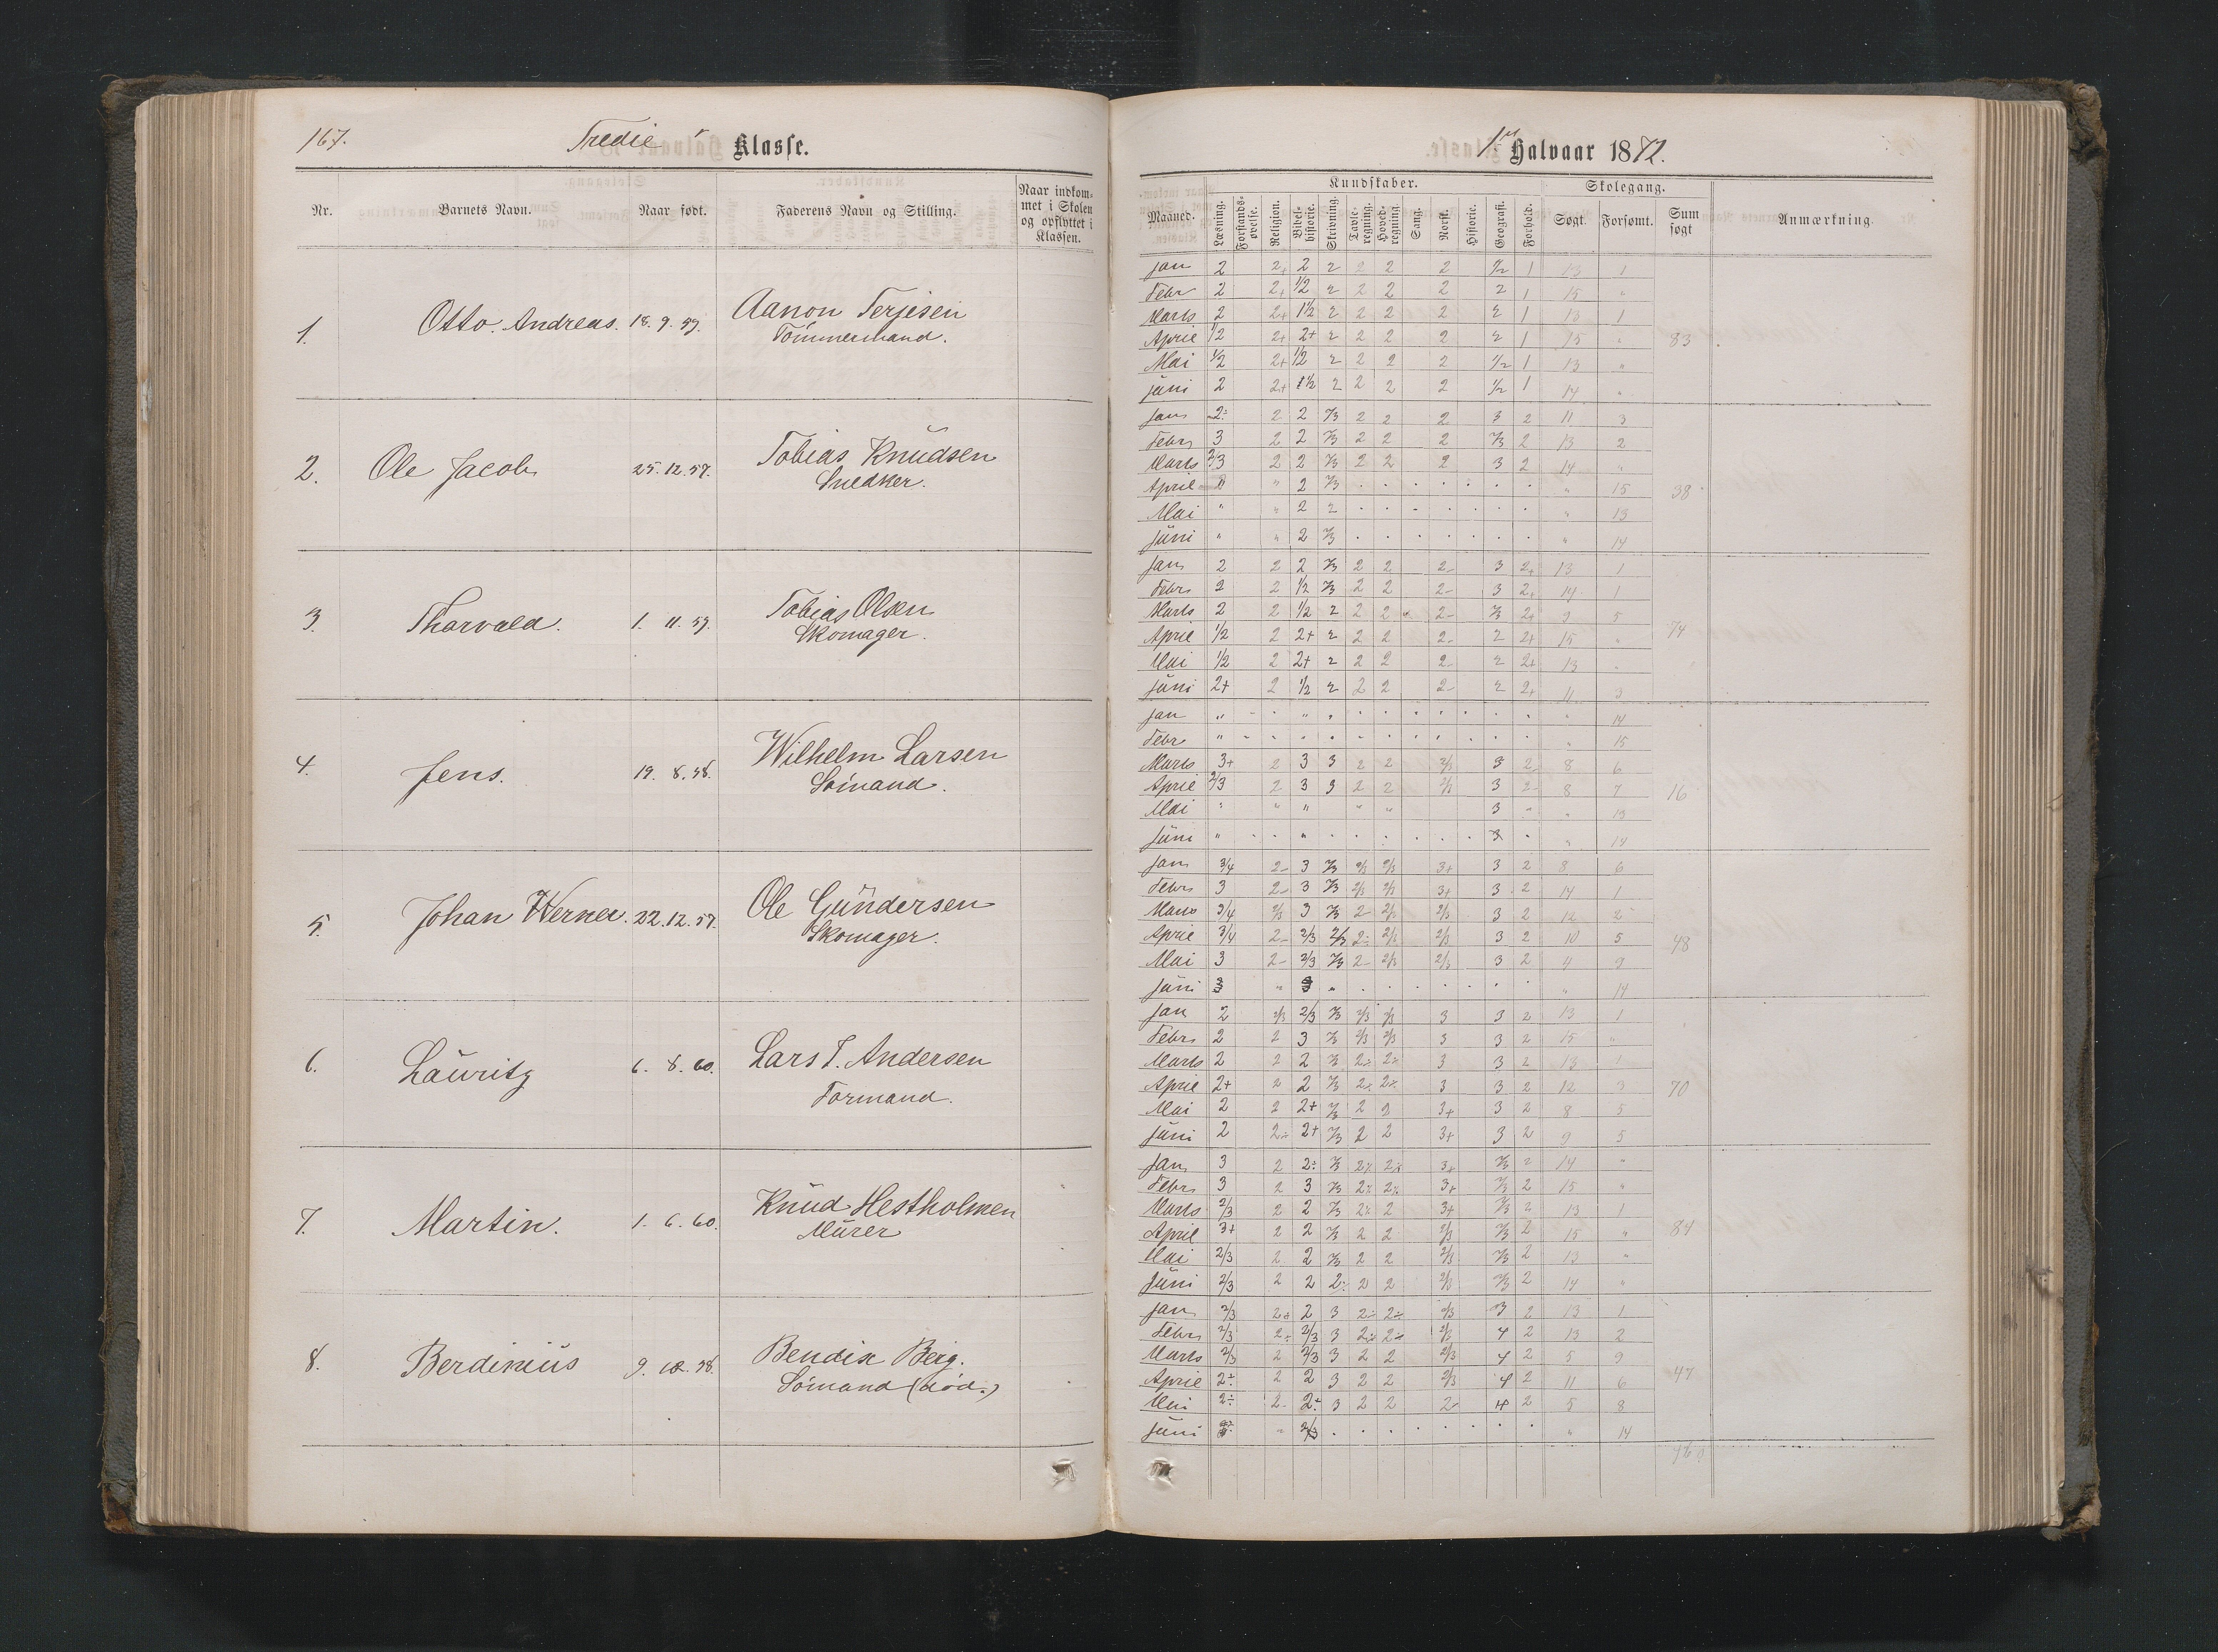 167.
Tredie Klasse.
Nr. Barnets Navn. Naar født. Faderens Navn og Stilling. Naar indkommet i Skolen og opflyttet i Klassen.
1. Otto Andreas. 18. 9. 59. Aanon Terjesen
Tømmermand.
2. Ole Jacob 25. 12. 57. Tobias Knudsen
Snedker.
3. Thorvald. 1. 11. 59. Tobias Olsen
Skomager.
4. Jens. 19. 8. 58. Wilhelm Larsen
Sømand.
5. Johan Werner. 22. 12. 57. Ole Gundersen
Skomager.
6. Lauritz 6. 8. 60. Lars T. Andersen
Formand.
7. Martin. 1. 6. 60. Knud Hestholmen
Murer
8. Berdinius 9. 58. Bendix Berg.
Sømand (død.)
1ste Halvaar 1872.
Kundskaber. Skolegang.
Maaned. Læsning. Forstandsøvelse. Religion. Bibelhistorie. Skrivning. Tavleregning. Hovedregning. Sang. Norsk. Historie. Geografi. Forhold. Søgt. Forsømt. Sum søgt Anmærkning.
Jan 2 2+ 2 2 2 2 2 1/2 1 13 1
Febr 2 2+ 1/2 2 2 2 2 2 1 15 "
Marts 2 2+ 1 1/2 2 2 2 2 2 1 13 1
April 1/2 2+ 2+ 2 2 2 2 2 1 15 " 83
Mai 1/2 2+ 1/2 2 2 2 2 1/2 1 13 "
Juni 2 2+ 1 1/2 2 2 2 2 1/2 1 14 "
Jan 2÷ 2 2 2/3 2 2 2 3 2 11 3
Febr 3 2 2 2/3 2 2 2 2/3 2 13 2
Marts 2/3 2 2 2/3 2 2 2 3 2 14 "
April " 2 2/3 " 15 38
Mai " " 2 2 " 13
Juni " " 2 2/3 " 14
Jan 2 2 2 2/3 2 2 2- 3 2+ 13 1
Febr 2 2 1/2 2/3 2 2 2- 3 2+ 14 1
Marts 2 2 1/2 2 2 2 2- 2/3 2+ 9 5
April 1/2 2 2+ 2 2 2 2- 2 2+ 15 " 74
Mai 1/2 2 2+ 2 2 2 2- 2 2+ 13 "
Juni 2+ 2 1/2 2 2 2 2- 2 2+ 11 3
Jan " " 14
Febr " " 15
Marts 3+ 2 3 3 2 2 2/3 3 2- 8 6
April 2/3 2 3 3 2 2 2/3 3 2- 8 7 16
Mai " " " " " 3 " " 13
Juni " " 3 " 14
Jan 3/4 2- 3 2/3 2/3 2/3 3+ 3 2 8 6
Febr 3 2- 3 2/3 2/3 2/3 3+ 3 2 14 1
Marts 3/4 2/3 3 2/3 2- 2/3 2/3 3 2 12 2
April 3/4 2- 2/3 2/3 2÷ 2/3 2/3 3 2 10 5 48
Mai 3 2- 2/3 2/3 2- 2/3 2/3 3 2 4 9
Juni 3 " 3 " " 14
Jan 2 2/3 2/3 2/3 2/3 2/3 3 3 2 13 1
Febr 2 2 3 2/3 2/3 2/3 3 3 2 15 "
Marts 2 2 2 2/3 2÷ 2÷ 3 3 2 13 1
April 2+ 2 2 2/3 2÷ 2÷ 3 3 2 12 3 70
Mai 2 2 2+ 2/3 2 2 3+ 3 2 8 5
Juni 2 2÷ 2+ 2/3 2 2 3+ 3 2 9 5
Jan 3 2 2÷ 2/3 2÷ 2÷ 3+ 2/3 2 14 "
Febr 3 2 3 2/3 2÷ 2÷ 3+ 2/3 2 15 "
Marts 2/3 2 2 2/3 2÷ 2 3+ 2/3 2 13 1
April 3+ 2 2 2/3 2 2 2/3 2/3 2 15 " 84
Mai 2/3 2 2 2/3 2 2 2/3 2/3 2 13 "
Juni 2/3 2 2 2÷ 2 2 2/3 2/3 2 14 "
Jan 2/3 2+ 2 3 2÷ 2÷ 2/3 3 2 13 1
Febr 2/3 2÷ 2/3 3 2÷ 2÷ 2/3 4 2 13 2
Marts 2/3 2 2/3 3 2 2 2/3 4 2 5 9
April 2÷ 2 2 3 2 2 2/3 4 2 11 6 47
Mai 2÷ 2- 2÷ 3 2 2 2- 4 2 5 8
Juni " 2/3 " 14